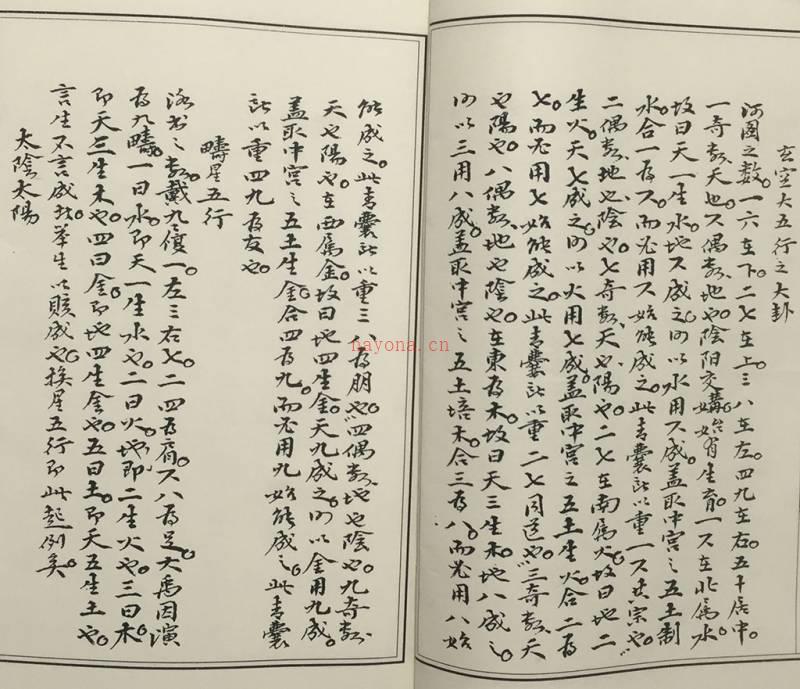 玄空大五行之大卦
河圖之數。一六在下。二七在上。三八在左。四九在右。五十居中。
一奇數天也。六偶數地也。陰陽交媾。始有生育。一六在北屬水
故曰天一生水。地六成之。所以水用六成。蓋取中宮之五土制
水合一為六。而必用六始能成之。此青囊所以重一六共宗也。
二偶數地也陰也。七奇數天也陽也。二七在南屬火。故曰地二
生火。天七成之。所以火用七成。蓋取中宮之五土生火。合二為
七。而必用七始能成之。此青囊所以重二七同道也。三奇數天
也陽也。八偶數地也陰也。在東為木。故曰天三生木。地八成之。
所以三用八成。蓋取中宮之五土培木。合三為八。而必用八始
能成之。此青囊所以重三八為朋也。四偶數地也陰也。九奇數
天也陽也。在西屬金。故曰地四生金。天九成之。所以金用九成。
蓋取中宮之五土生金。合四為九。而必用九始能成之。此青囊
所以重四九為友也。
疇星五行
洛書之數。戴九履一。左三右七。二四為肩。六八為足。大禹因演
為九疇。一曰水。即天一生水也。二曰火。地即二生火也。三曰木
即天三生木也。四曰金。即地四生金也。五曰土。即天五生土也。
言生不言成。故舉生以賅成也。挨星五行即此起例矣。
太陰太陽
nayona.cn